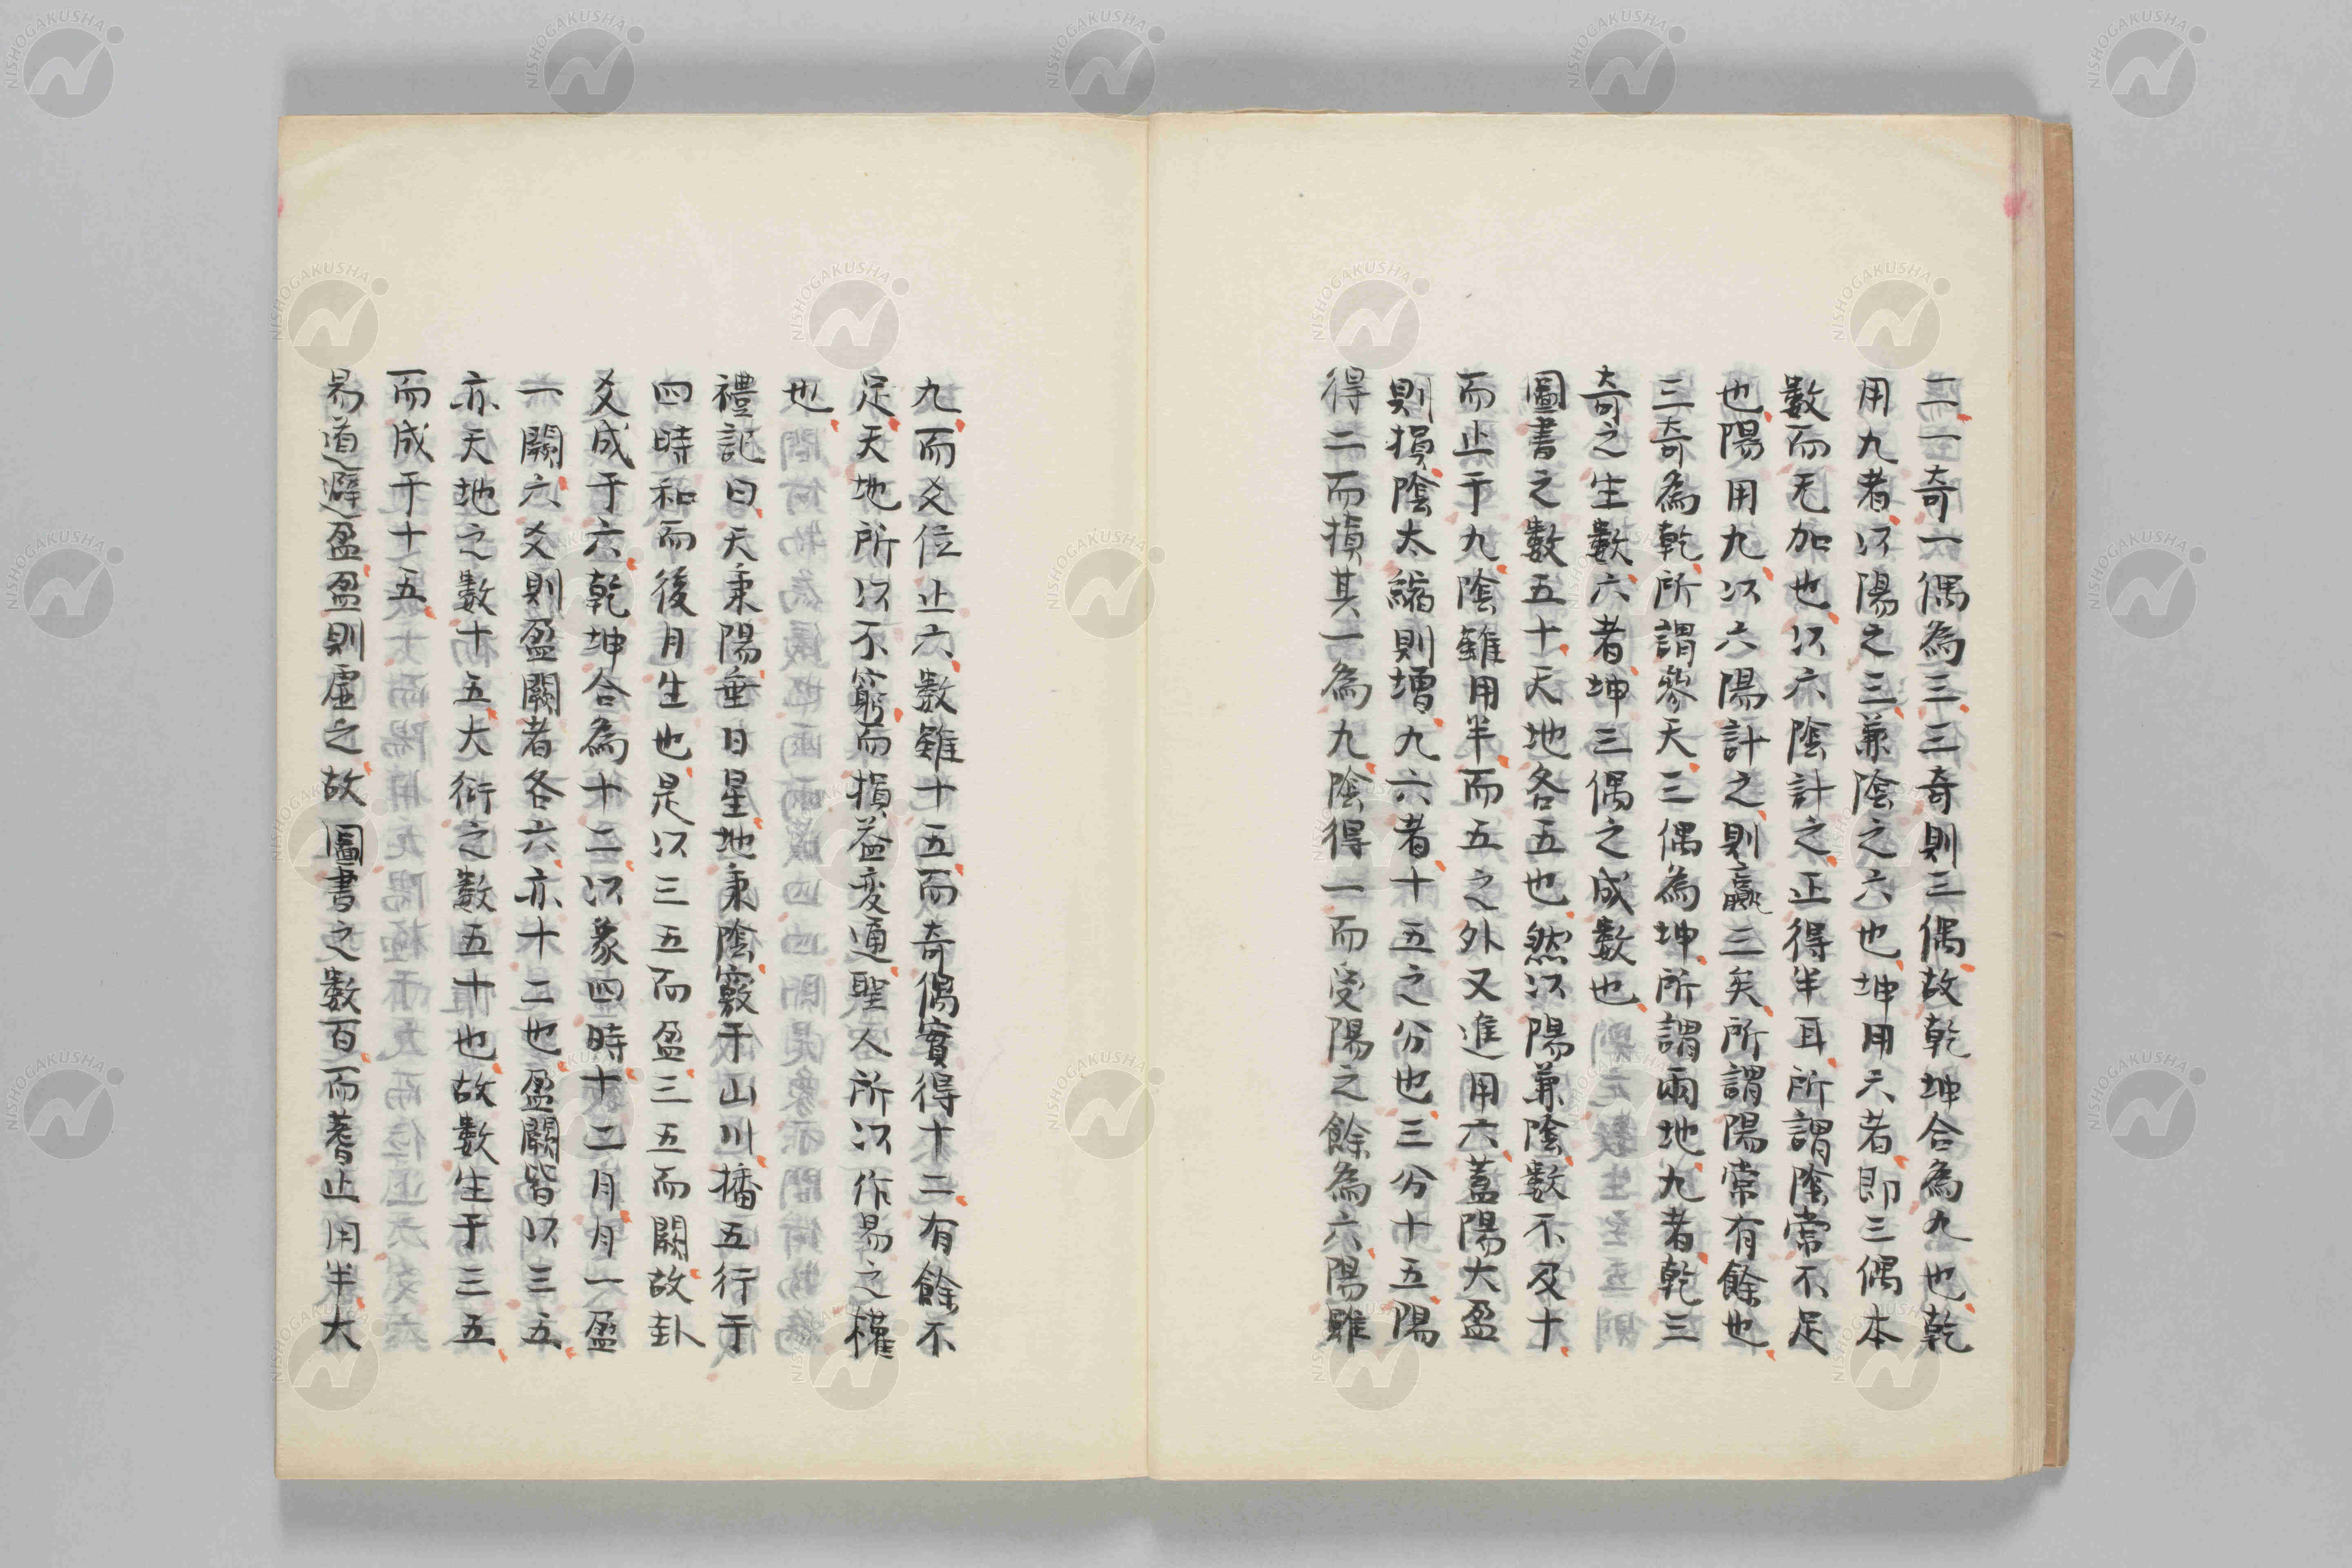 二一奇一偶為三三奇則三偶故乾坤合為九也乾
用九者以陽之三兼陰之六也坤用六者即三偶本
數而无加也以六陰計之正得半耳所謂陰常不足
也陽用九以六陽計之則贏三矣所謂陽常有餘也
三奇為乾所謂參天三偶為坤所謂兩地九者乾三
奇之生數六者坤三偶之成數也
圖書之數五十天地各五也然以陽兼陰數不及十
而止于九陰雖用半而五之外又進用六蓋陽大盈
則損陰太縮則增九六者十五之分也三分十五陽
得二而損其一為九陰得一而受陽之餘為六陽雖
九而爻位止六數雖十五而奇偶實得十二有餘不
足天地所以不窮而損益变通聖人所以作易之權
也
禮記曰天秉陽垂日星地秉陰竅于山川播五行于
四時和而後月生也是以三五而盈三五而闕故卦
爻成于六乾坤合為十二以象四時十二月月一盈
一闕六爻則盈闕者各六亦十二也盈闕皆以三五
亦天地之數十五大衍之數五十也故數生于三五
而成于十五
易道避盈盈則虛之故圖書之數百而蓍止用半大
NISHOGAKUSHA